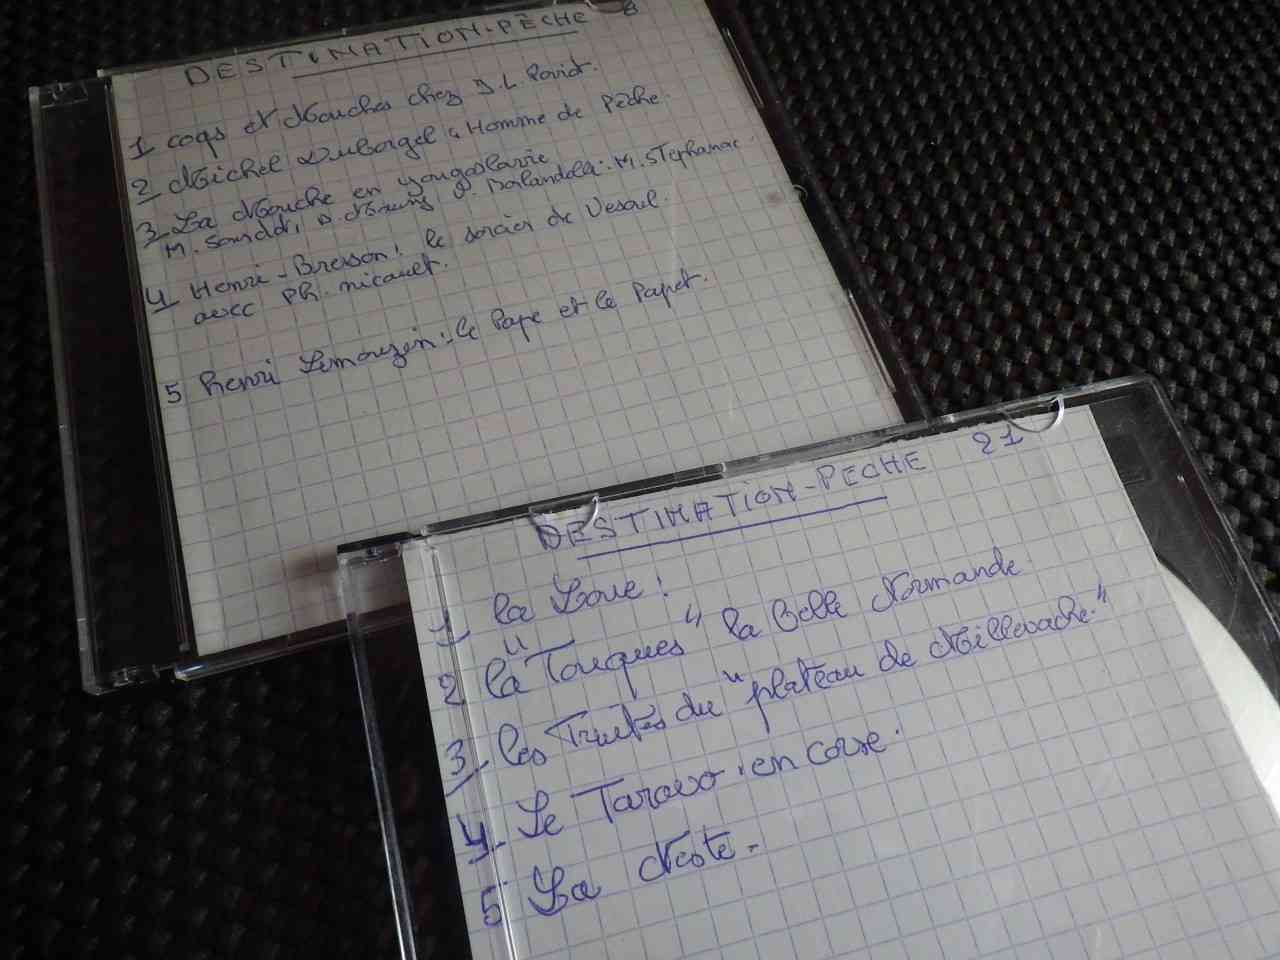 DESTINATION-PÊCHE 8
1 coqs et Mouches chez J.L. Poirot.
2 Michel Duborgel " Homme de Pêche.
3 La Mouche en yougoslavie
M. Sandri, D. J. M. Stephanac.
4 Henri-Bresson: le sorcier de Vesoul.
avec Ph. nicault.
5 henri Limouzin: le Pape et le Papet.
DESTINATION-PECHE 21
1 la Loue!
2 la "Touques" la belle Normande
3 les Truites du "plateau de Millevache."
4. Le Taravo en corse.
5 La Neste.